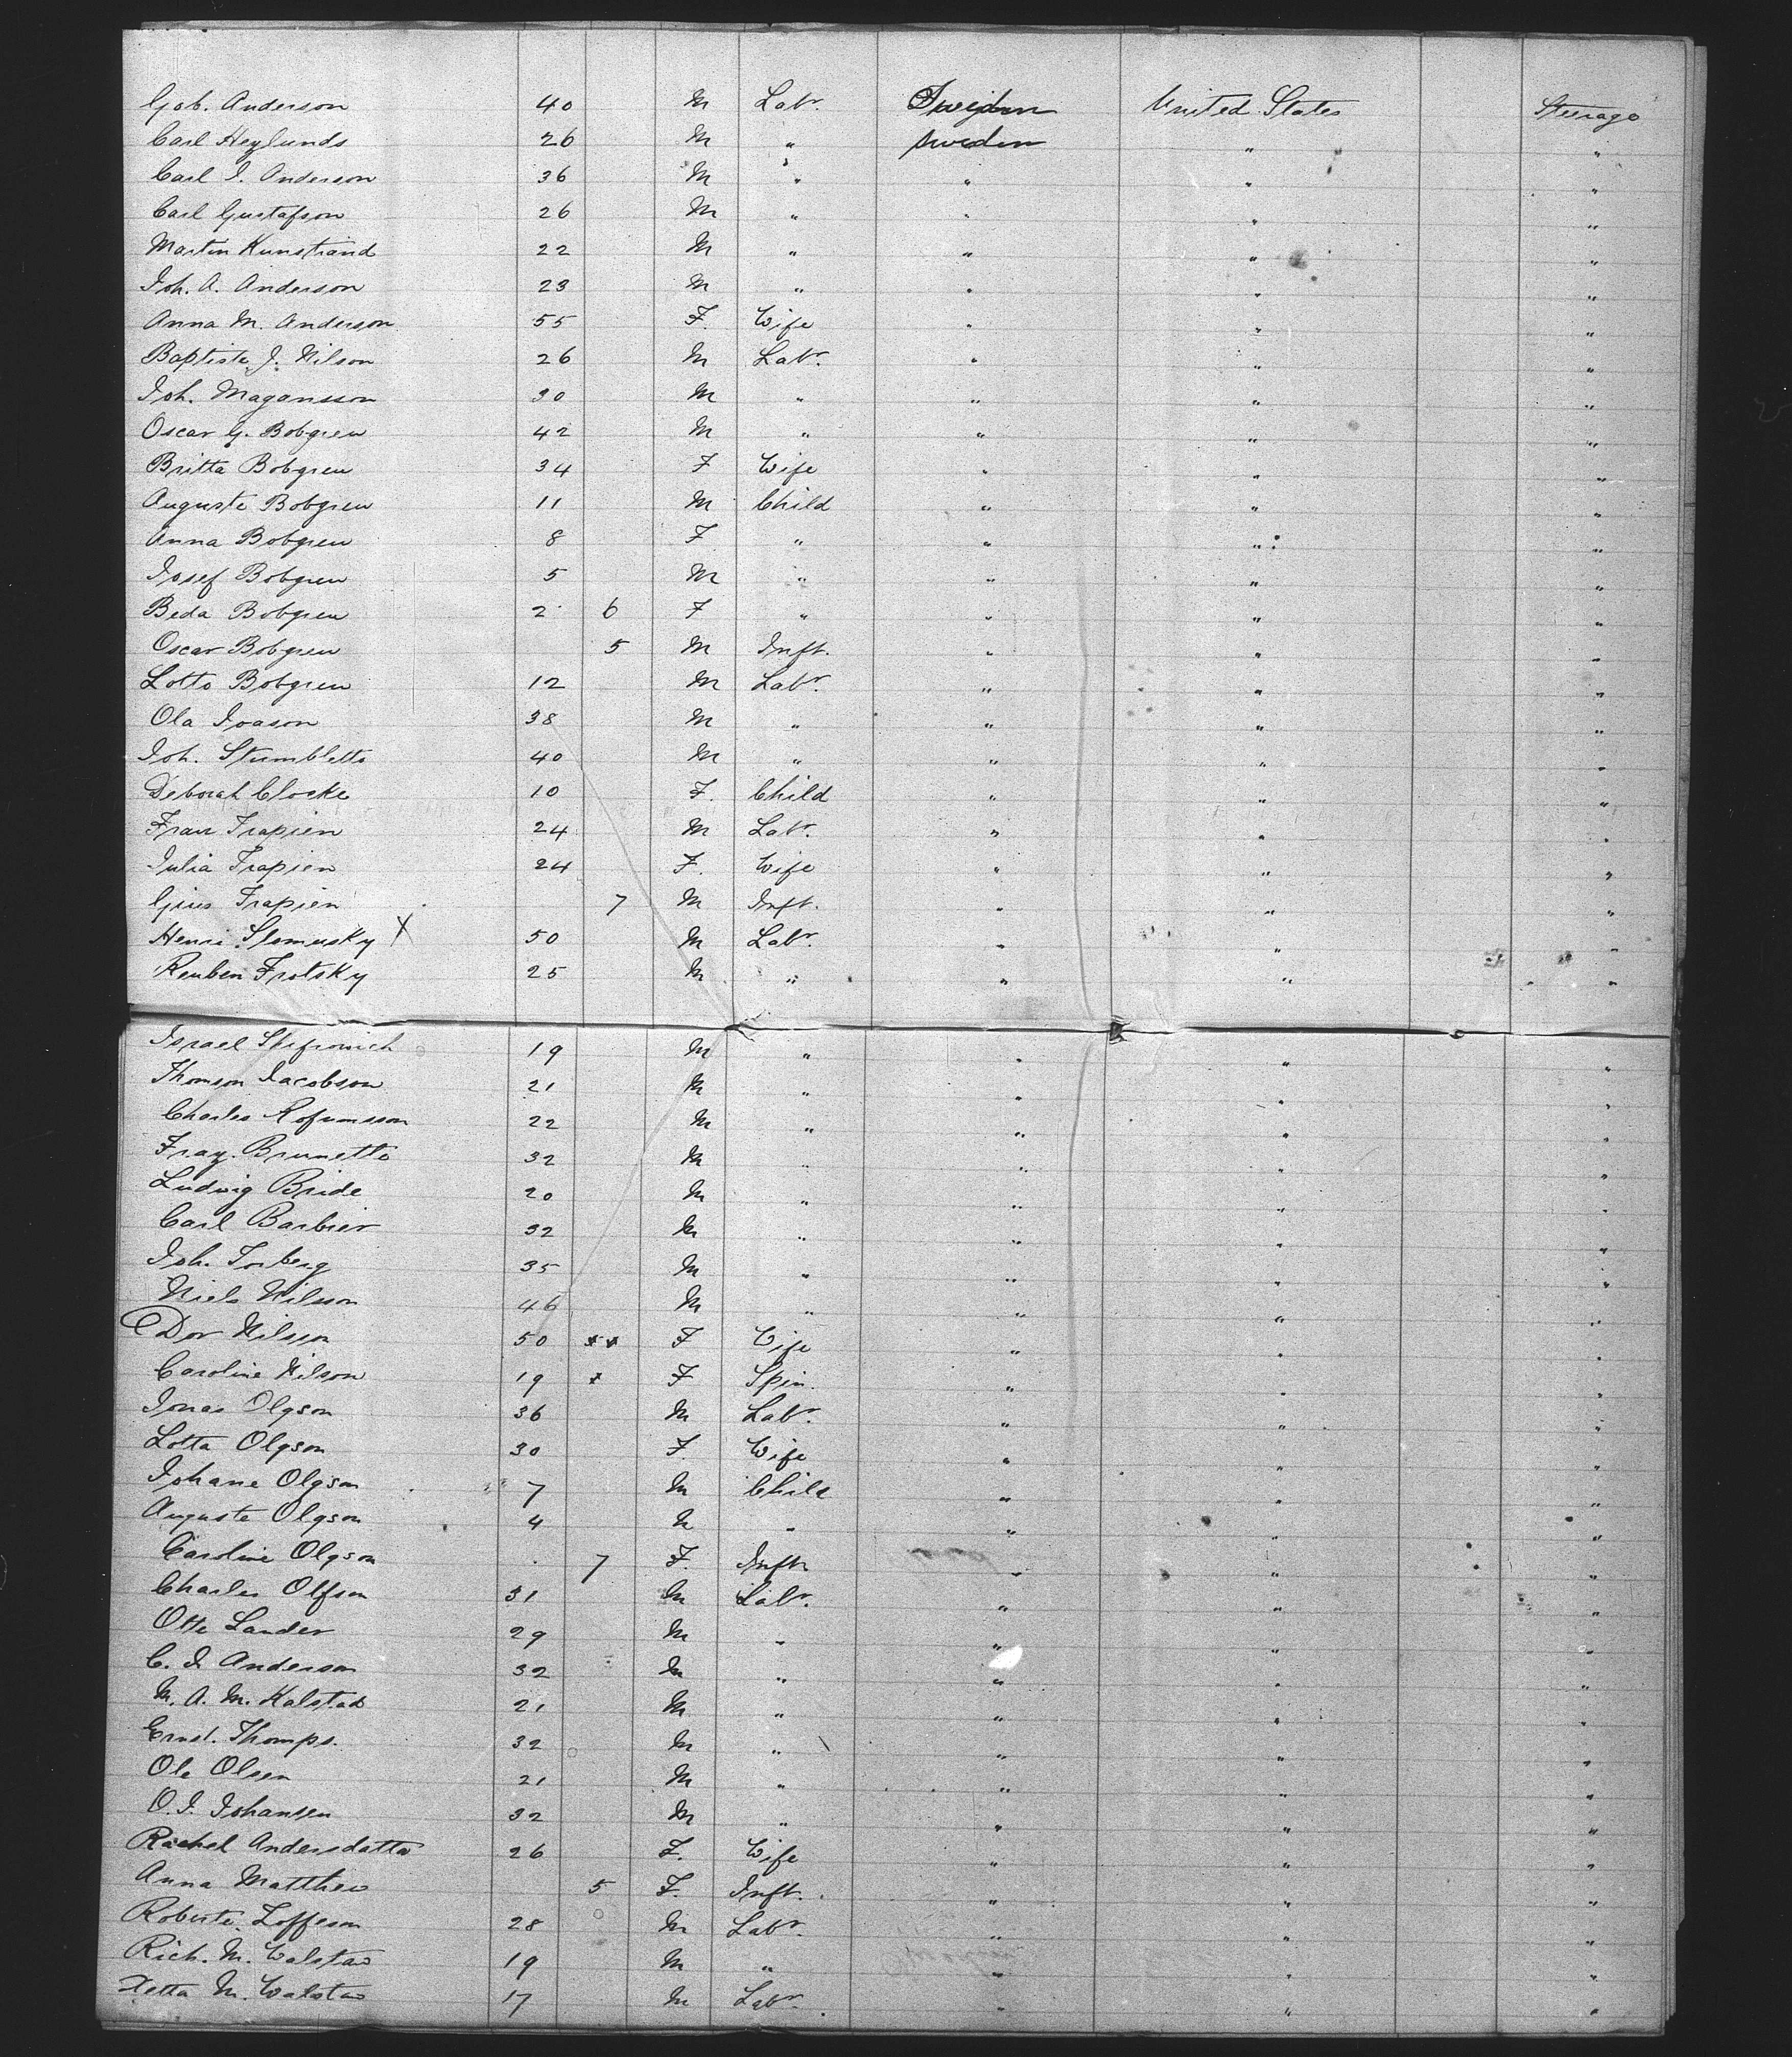 Gob. Anderson 40 M Labr. Sweden United States Steerage
Carl Heglunds 26 M " Sweden " "
Carl I. Anderson 36 M " " " "
Carl Gustafson 26 M " " " "
Martin Kunstrand 22 M " " " "
Joh. A. Anderson 23 M " " " "
Anna M. Anderson 55 F. Wife " " "
Baptiste J. Nilson 26 M Labr. " " "
Joh. Magansson 30 M " " " "
Oscar G. Bobgren 42 M " " " "
Britta Bobgren 34 F Wife " " "
Auguste Bobgren 11 M Child " " "
Anna Bobgren 8 F " " " "
Josef Bobgren 5 M " " " "
Beda Bobgren 2 6 F " " " "
Oscar Bobgren 5 M Inft. " " "
Lotto Bobgren 12 M Labr. " " "
Ola Joason 38 M " " " "
Joh. Stumbletto 40 M " " " "
Deborah Clocke 10 F. Child " " "
Franz Trapien 24 M Labr. " " "
Julia Trapien 24 F. Wife " " "
Trapien 7 M Inft. " " "
Henri Slomusky X 50 M Labr. " " "
Reuben Frotsky 25 M " " " "
Israel 19 M " " " "
Thomson Jacobson 21 M " " " "
Charles 22 M " " " "
Fray. Brunetto 32 M " " " "
Ludwig Bride 20 M " " " "
Carl Barbier 32 M " " " "
Joh. Torberg 35 M " " " "
Niels Nilsson 46 M " " " "
Dor Nilsson 50 F Wife " " "
Caroline Nilson 19 F Spin. " " "
Jonas Olgson 36 M Labr. " " "
Lotta Olgson 30 F. Wife " " "
Johane Olgson 7 M Child " " "
Auguste Olgson 4 M " " " "
Caroline Olgson 7 F. Inft. " " "
Charles Olfson 31 M Labr. " " "
Otto Lander 29 M " " " "
C. I. Anderson 32 M " " " "
M. A. M. Kalstad 21 M " " " "
Ernst. Thomps. 32 M " " " "
Ole Olsen 21 M " " " "
O. I. Johansen 32 M " " " "
Rachel Andersdatta 26 F. Wife " " "
Anna Matthew 5 F. Inft. " " "
Roberte. Loffeson 28 M Labr. " " "
Rich. M. Walstad 19 M " " " "
M. Walstad 17 M Labr. " " "